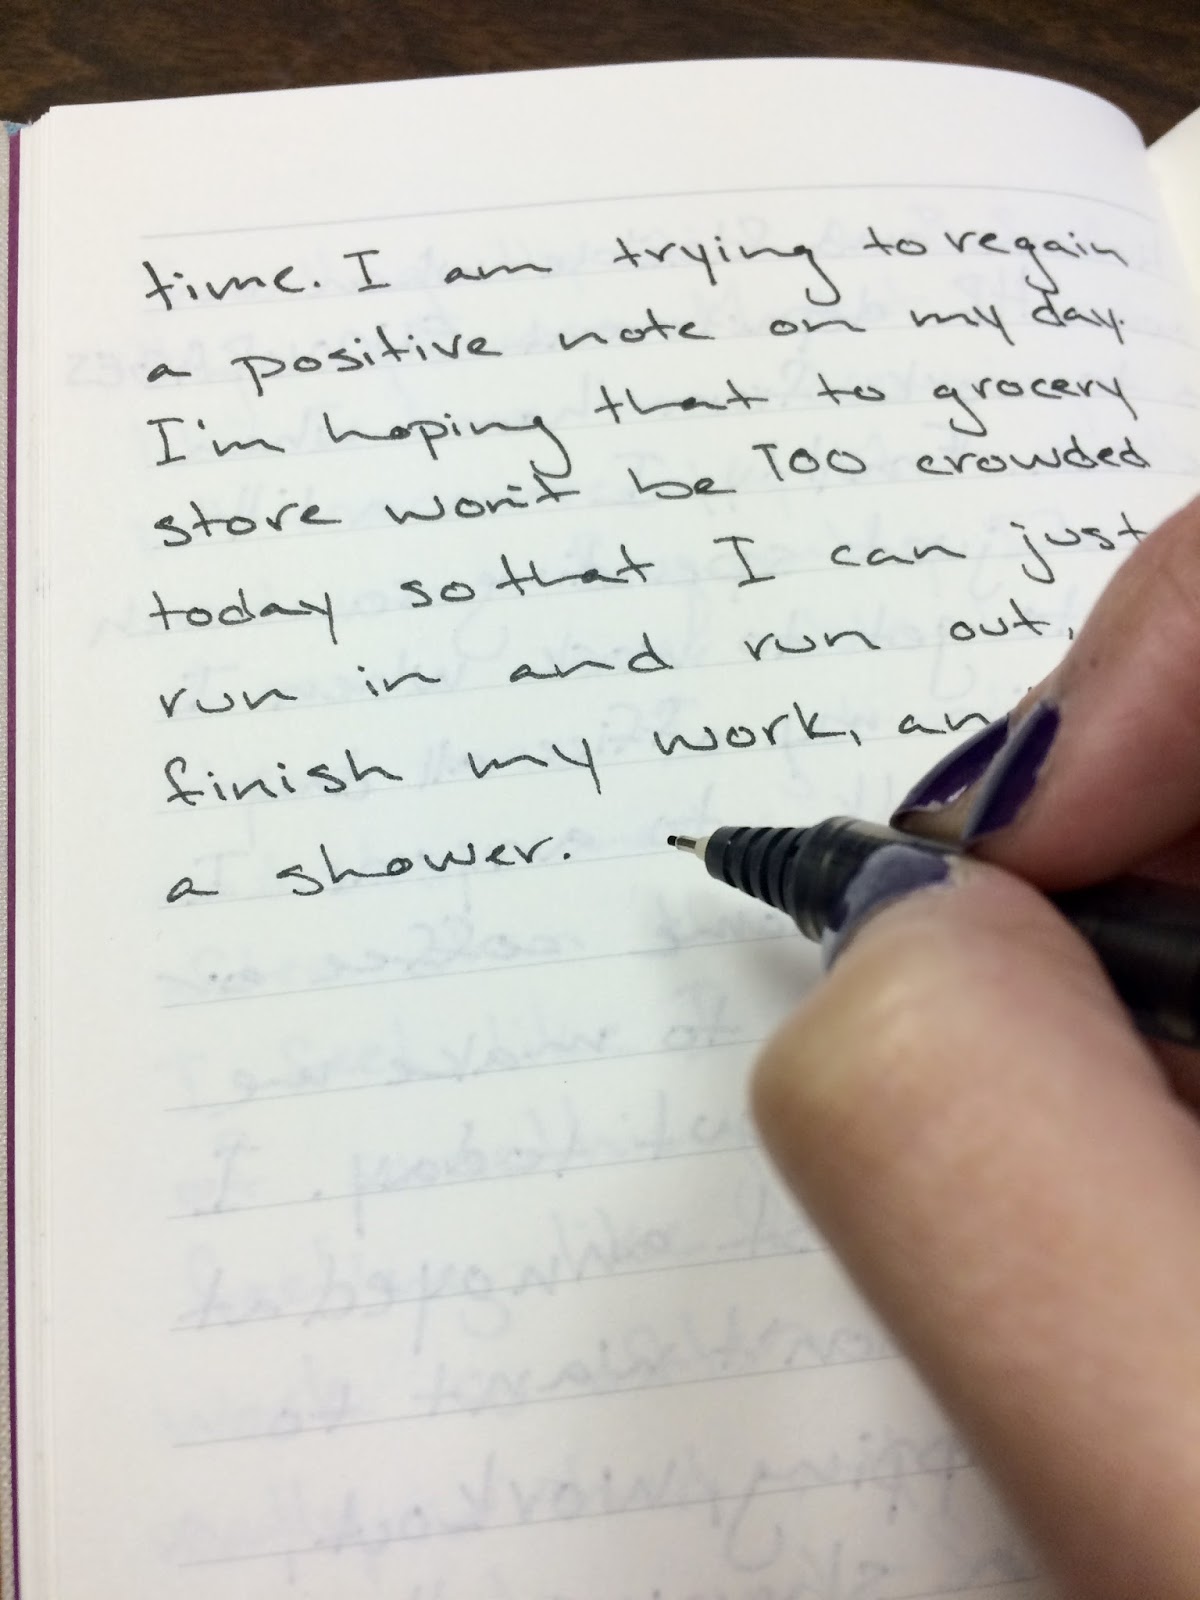 time. I am trying to regain
a positive note on my day.
I'm hoping that to grocery
store won't be TOO crowded
today so that I can just
run in and run out,
finish my work,
a shower.